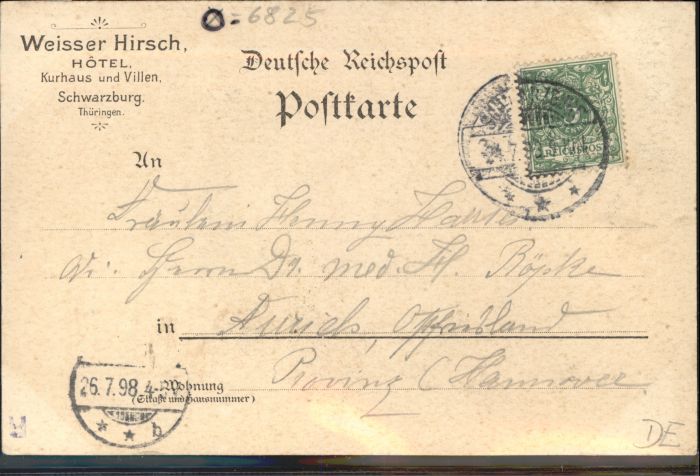 6825
Weisser Hirsch,
HÔTEL,
Kurhaus und Villen,
Schwarzburg.
Thüringen.
Deutsche Reichspost
Postkarte
REICHSPOST
An
Fräulein Henny
Herrn Dr. med. H. Röpke
in Aurich, Ostfriesland
Provinz Hannover
26.7.98
Wohnung
(Straße und Hausnummer)
b
DE